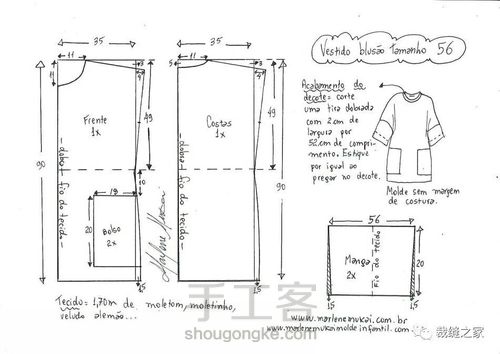 Vestido blusão tamanho 56
35
11
3
4
11
Frente
1x
49
90
dobra
fio do tecido
10
18
20
Bolso
2x
15
35
5
11
3
4
Costas
1x
49
90
dobra
fio do tecido
15
Acabamento do
decote = corte
uma tira dobrada
com 2cm de
largura por
52cm de compri-
mento. Estique
por igual ao
pregar no decote.
Molde sem margem
de costura.
56
Manga
2x
Fio do tecido
20
15
Marlene Mukai
Tecido: 1,70m de moletom, moletinho,
veludo alemão...
www.marlenemukai.com.br
www.marlenemukaimoldeinfantil.com
手工客
shougongke.com
裁缝之家